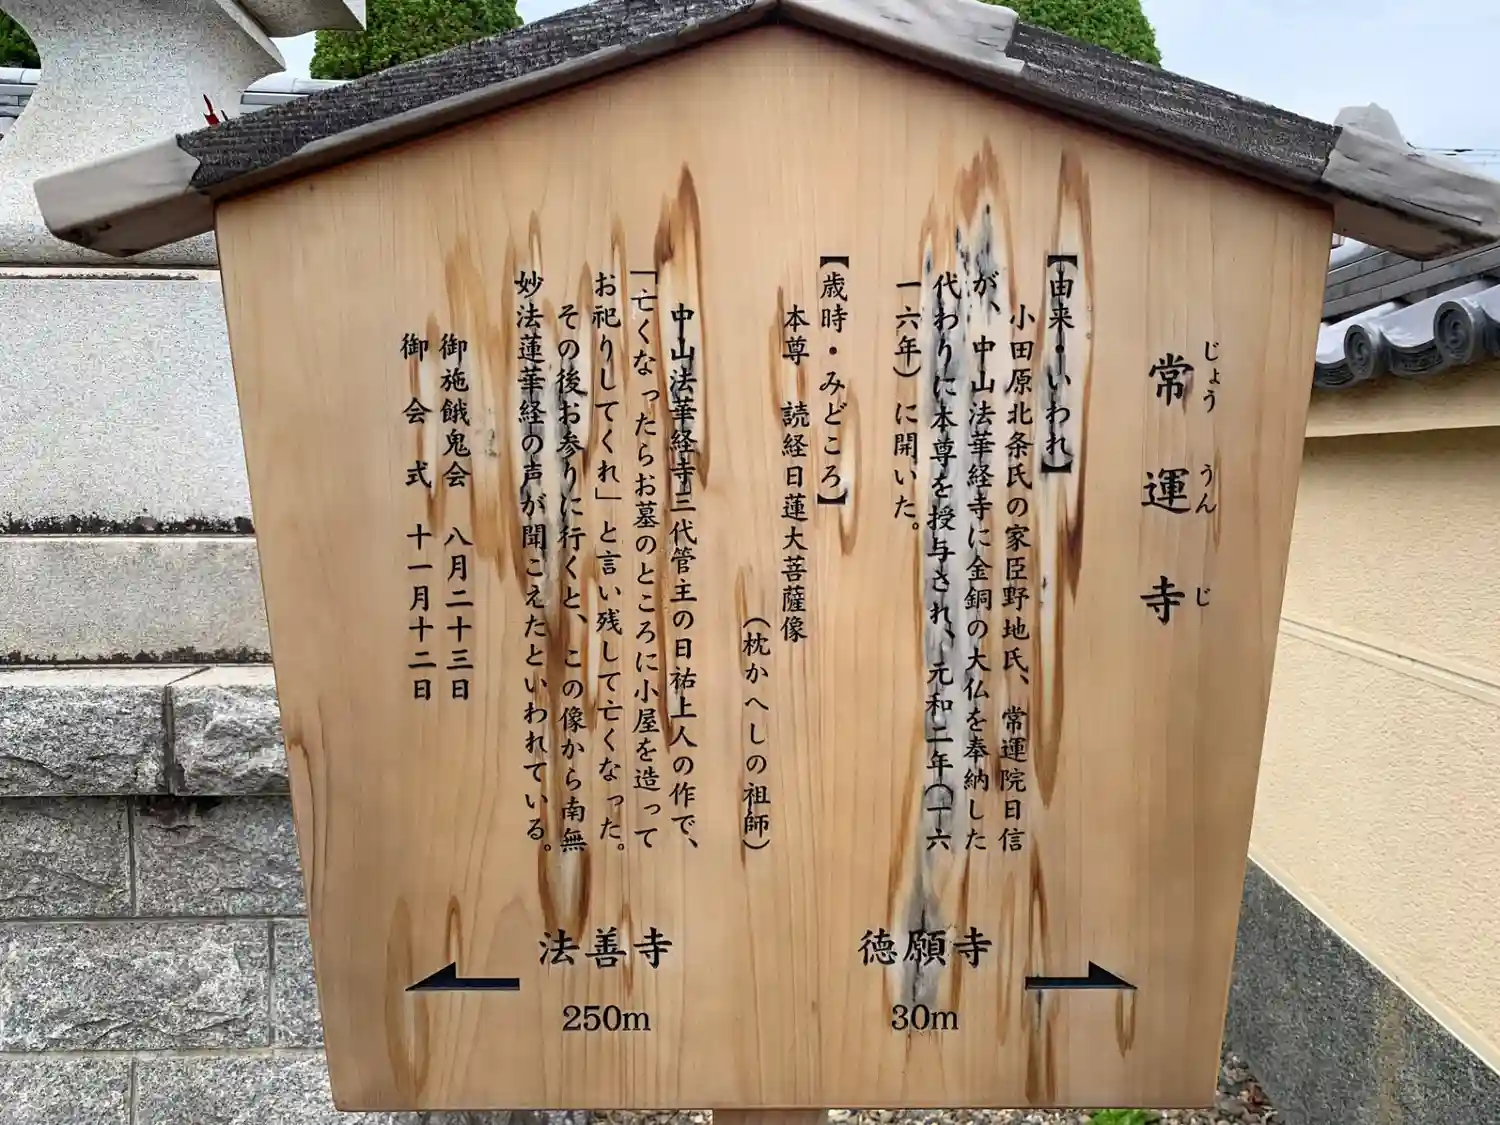 常運寺
じょううんじ
【由来・いわれ】
小田原北条氏の家臣野地氏、常運院日信
が、中山法華経寺に金銅の大仏を奉納した
代わりに本尊を授与され、元和二年（一六
一六年）に開いた。
【歳時・みどころ】
本尊 読経日蓮大菩薩像
（枕かへしの祖師）
中山法華経寺三代管主の日祐上人の作で、
「亡くなったらお墓のところに小屋を造って
お祀りしてくれ」と言い残して亡くなった。
その後お参りに行くと、この像から南無
妙法蓮華経の声が聞こえたといわれている。
御施餓鬼会 八月二十三日
御会式 十一月十二日
徳願寺
30m
法善寺
250m